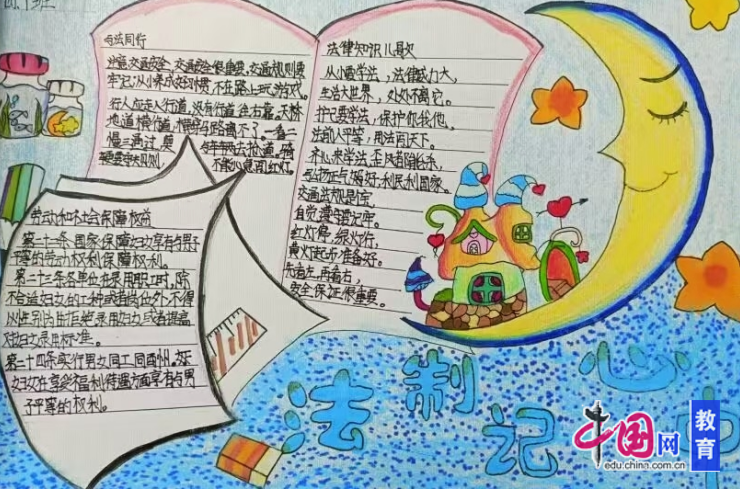 班
与法同行
注意交通安全,交通安全很重要,交通规则要
牢记,从小养成好习惯,不在路上玩游戏。
行人应走人行道,没有行道往右靠。天桥
地道横行道,横穿马路离不了。一看二
慢三通过,莫与车辆去抢道。骑
车更要守规则,不能心急闯红灯。
法律知识儿歌
从小要学法,法律威力大,
生活大世界,处处不离它。
护己要学法,保护你我他。
法前人平等,用法面天下。
齐心来学法,歪风都能杀,
弘扬正气好,利民利国家。
交通法规是宝,
自觉遵守要记牢。
红灯停,绿灯行,
黄灯起步准备好。
先看左,再看右,
安全保证很重要。
劳动和社会保障权益
第二十二条国家保障妇女享有与男子
平等的劳动权利保障权利。
第二十三条各单位在录用职工时,除
不合适妇女的工种或者岗位外,不得
以性别为由拒绝录用妇女或者提高
对妇女录用标准。
第二十四条实行男女同工同酬,女
妇女在享受福利待遇方面享有与男
子平等的权利。
法制记心中
中国网
edu.china.com.cn
教育